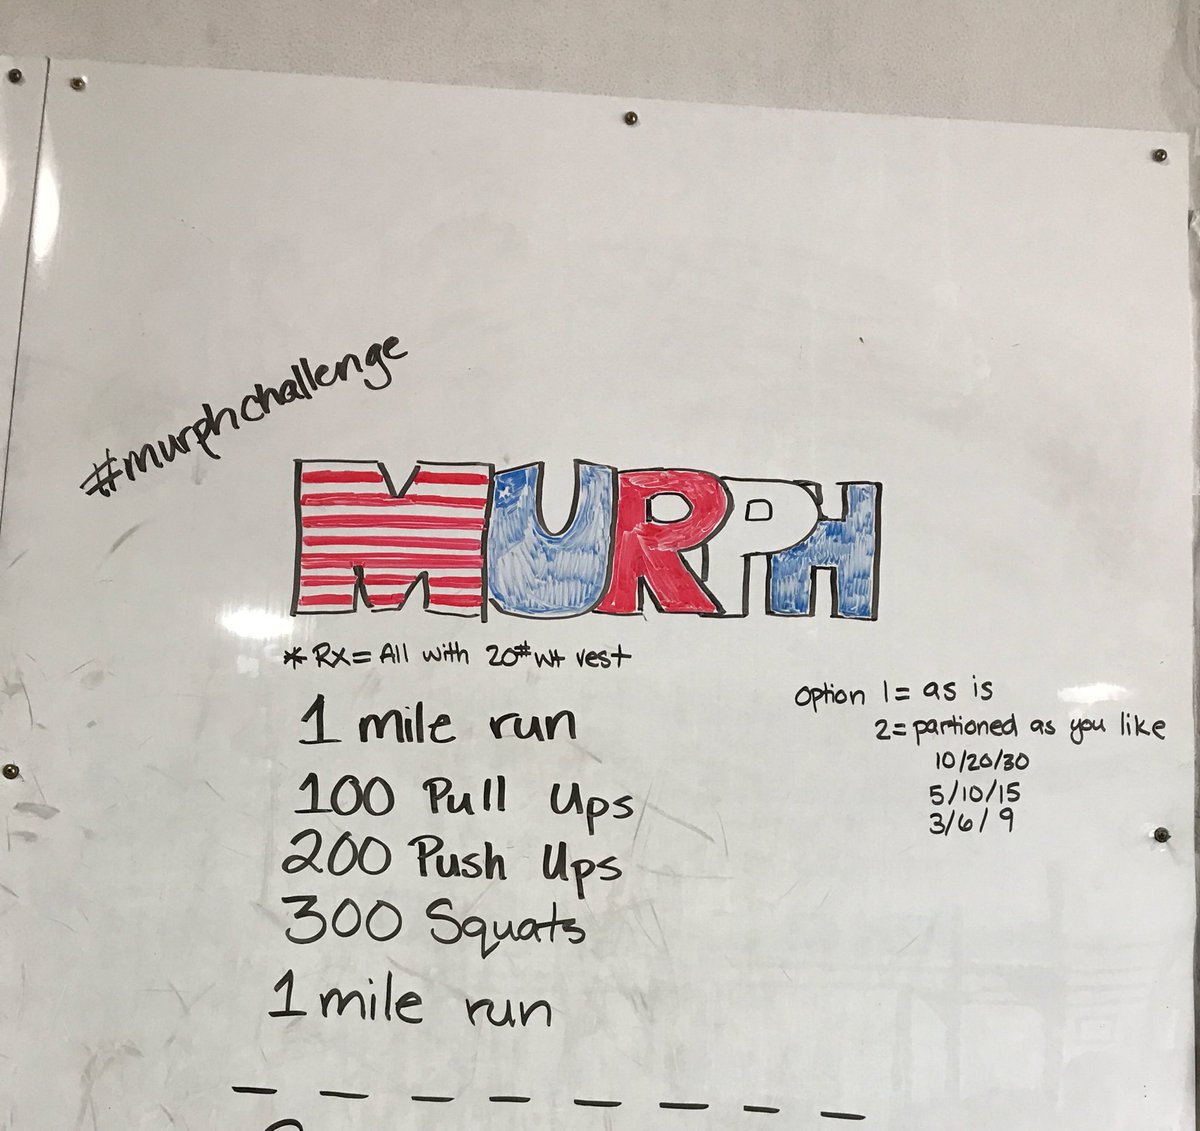 #murphchallenge
MURPH
*RX= All with 20# wt vest
1 mile run
100 Pull Ups
200 Push Ups
300 Squats
1 mile run
Option 1= as is
2= partioned as you like
10/20/30
5/10/15
3/6/9